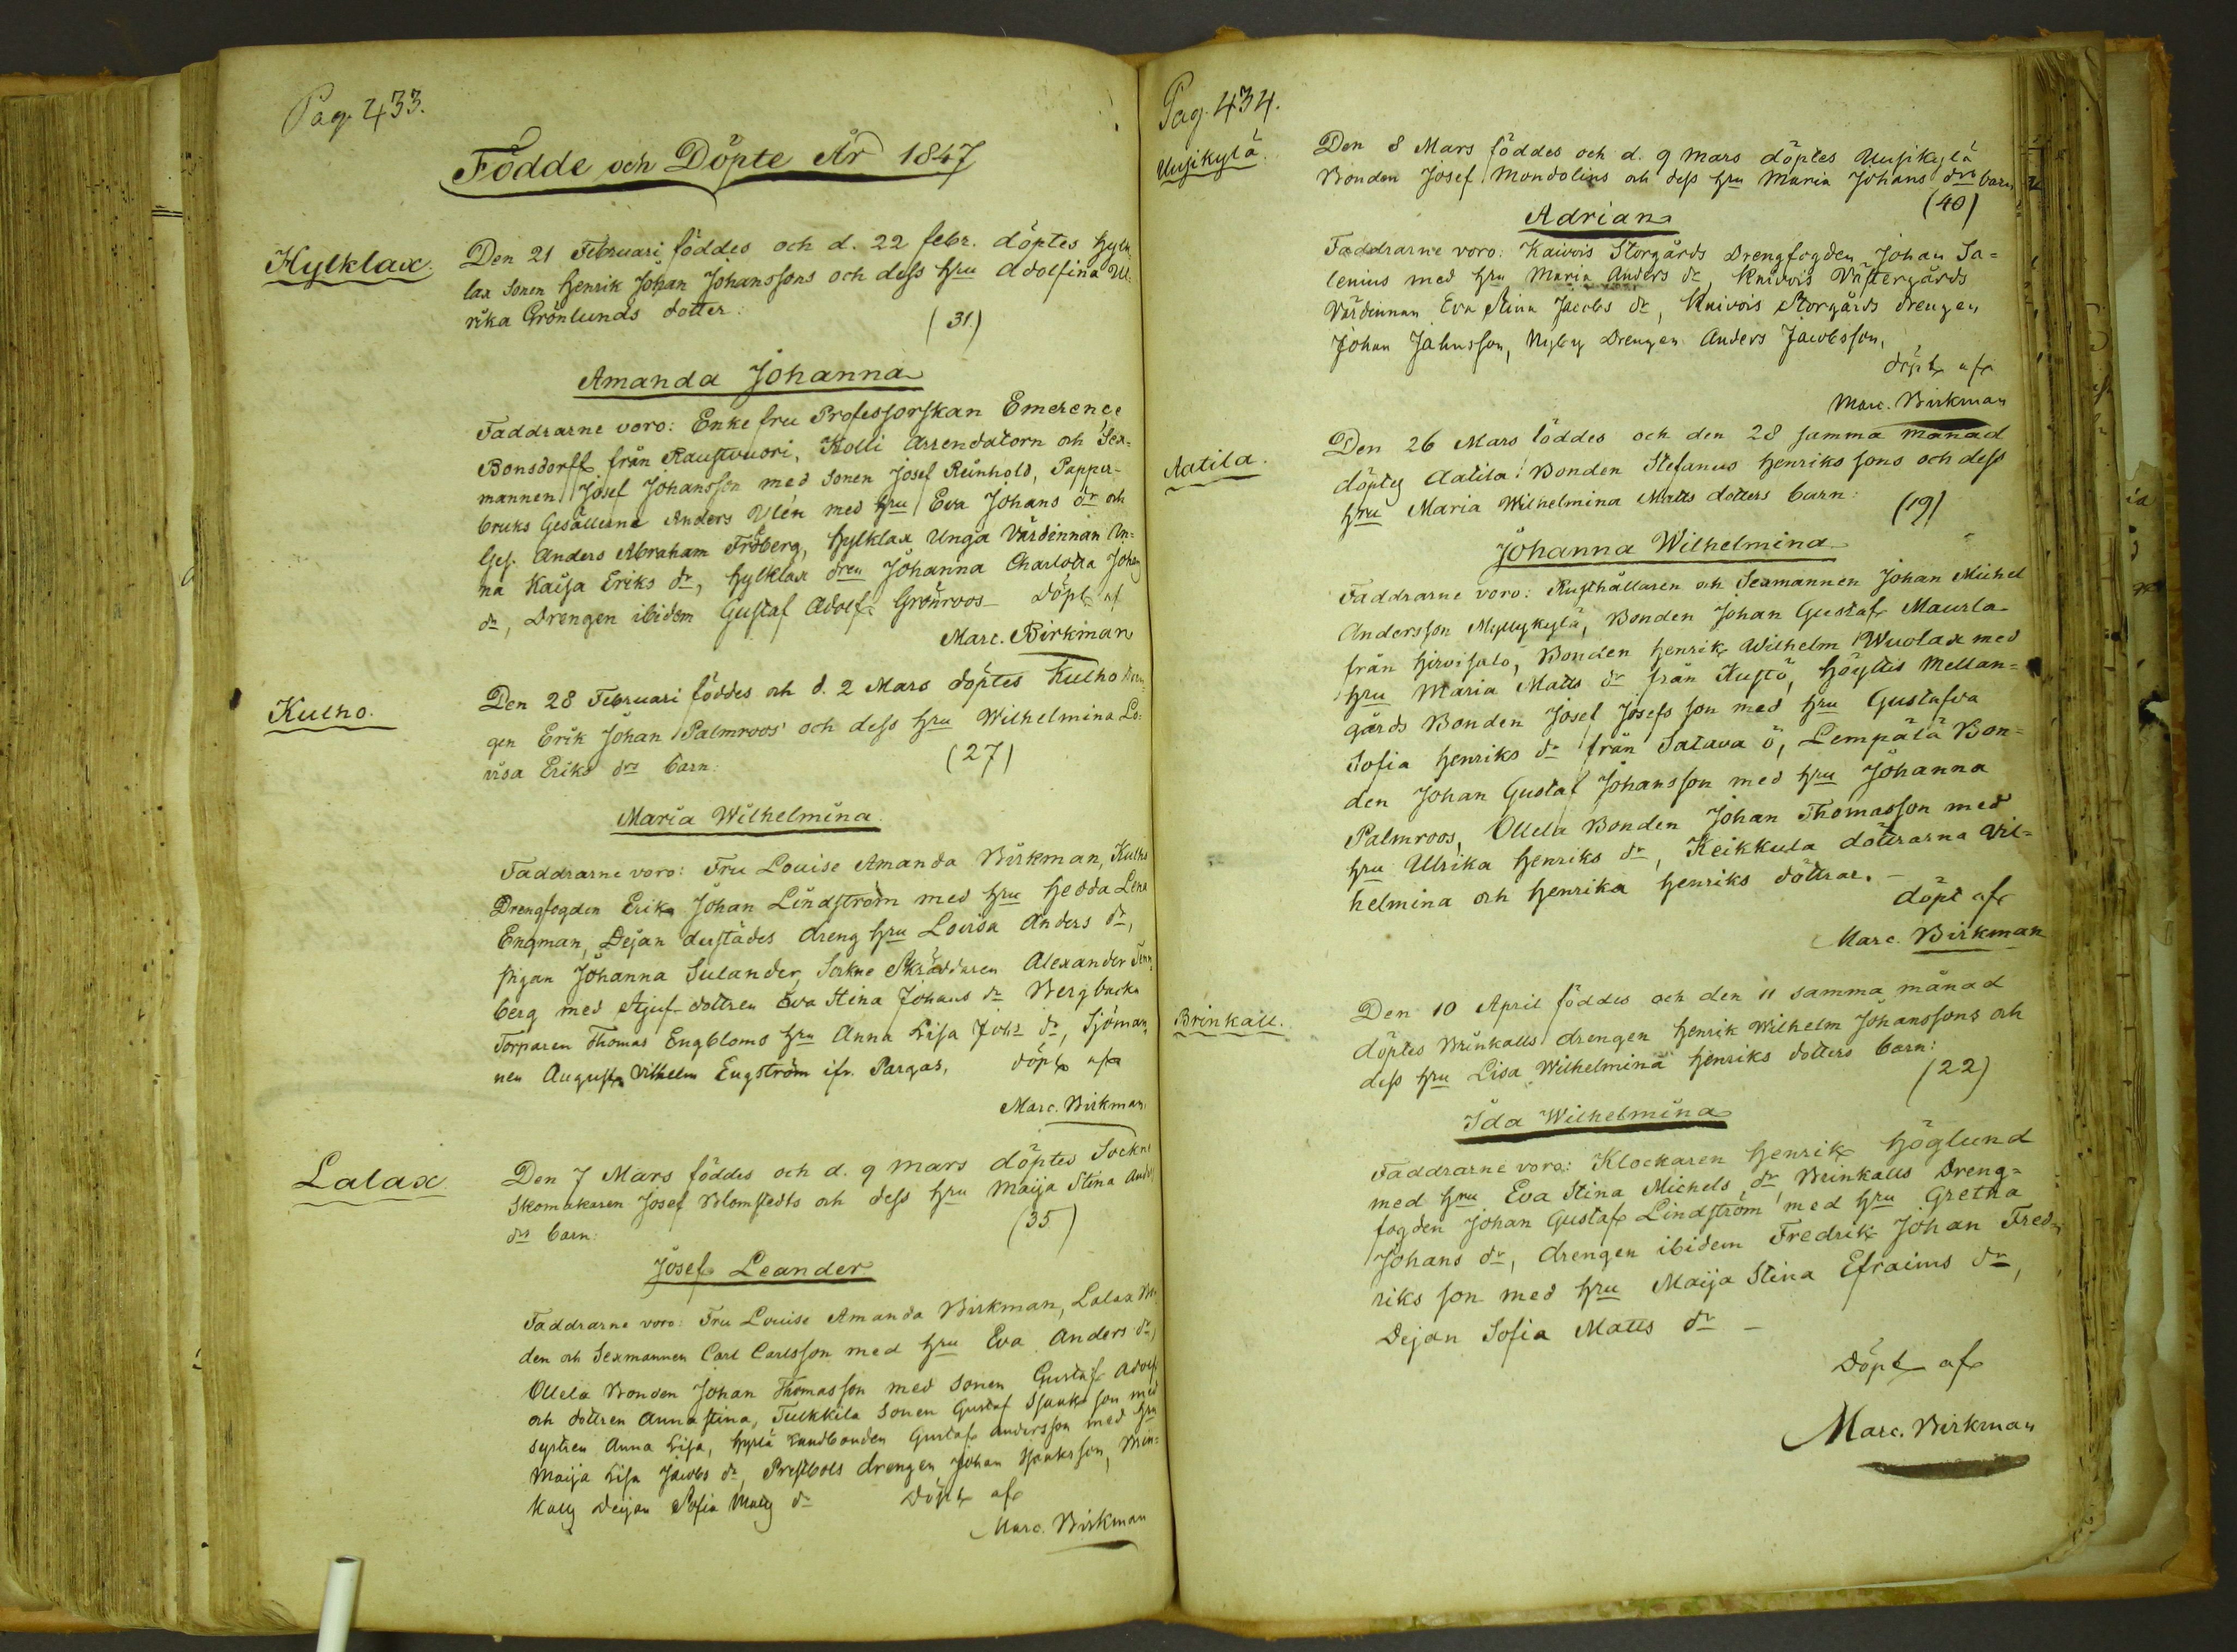 Pag. 433.
Födde och Döpte År 1847
Hylklax.
Den 21 Februari föddes och d. 22 febr. döptes Hylk
lax Sonen Henrik Johan Johanssons och dess hru Adolfina Ul
rika Grönlunds dotter:
(31.)
Amanda Johanna
Faddrarne voro: Enke fru Professorskan Emerence
Bonsdorff från Raustvuori, Kolli Arrendatorn och Sex-
mannen Josef Johansson med Sonen Josef Reinhold, Pappers-
bruks Gesällerne Anders Ulén med hru Eva Johans dr och
Ges. Anders Abraham Fröberg, Hylklax Unga Värdinnan An-
na Kaisa Eriks dr, Hylklax dren Johanna Charlotta Johans
dr, Drengen ibidem Gustaf Adolf Grönroos— Döpt af
Marc. Birkman
Kulho.
Den 28 Februari föddes och d. 2 Mars döptes Kulho Dren-
gen Erik Johan Palmroos' och dess hru Wilhelmina Lo-
visa Eriks drs barn:
(27)
Maria Wilhelmina
Faddrarne voro: Fru Louise Amanda Birkman, Kulho
Drengfogden Erik Johan Lindström med hru Hedda Lena
Engman, Dejan derstädes dreng hru Lovisa Anders dr,
pigan Johanna Sulander, Sockne Skräddaren Alexander
berg med Stjuf dottren Eva Stina Johans dr Bergbacka
Torparen Thomas Engbloms hru Anna Lisa Johs dr, Sjöman-
nen August Vilhelm Engström ifr. Pargas, döpt af
Marc. Birkman
Lalax
Den 7 Mars föddes och d. 9 Mars döptes Sockne
Skomakaren Josef Blomstedts och dess hru Maija Stina Anders
drs barn:
(35)
Josef Leander
Faddrarne voro: Fru Louise Amanda Birkman, Lalax Bon
den och Sexmannen Carl Carlsson med hru Eva Anders dr,
Ollela Bonden Johan Thomasson med Sonen Gustaf Adolf
och dottren Anna Stina, Tulkkila Sonen Gustaf Isaksson med
systren Anna Lisa, Hyrlä Landbonden Gustaf Andersson med hru
Maija Lisa Jacobs dr, Prestbols drengen Johan Isaksson, Brin-
kalls Dejan Sofia Matts dr Döpt af
Marc. Birkman
Pag. 434.
Uusikylä.
Den 8 Mars föddes och d. 9 Mars döptes Uusikylä
Bonden Josef Mondolins och dess hru Maria Johans drs barn
(40)
Adrian
Faddrarne voro: Kaivois Storgårds Drengfogden Johan Sa-
lenius med hru Maria Anders dr, Kaivois Västergårds
Värdinnan Eva Stina Jacobs dr, Kaivois Storgårds Drengen
Johan Johnsson, Nyby Drengen Anders Jacobsson,
döpt af
Marc. Birkman
Aatila.
Den 26 Mars föddes och den 28 samma månad
döptes Aatila Bonden Stefanus Henrikssons och dess
hru Maria Wilhelmina Matts dotters barn:
(19)
Johanna Wilhelmina
Faddrarne voro: Rusthållaren och Sexmannen Johan Michel
Andersson Myllykylä, Bonden Johan Gustaf Maurla
från Hirvisalo, Bonden Henrik Wilhelm Wuolax med
hru Maria Matts dr från Kustö, Höyttis Mellan-
gårds Bonden Josef Josefsson med hru Gustafva
Sofia Henriks dr från Satava ö, Lempälä Bon-
den Johan Gustaf Johansson med hru Johanna
Palmroos, Ollela Bonden Johan Thomasson med
hru Ulrika Henriks dr, Keikkula döttrarna Vil-
helmina och Henrika Henriks döttrar.—
döpt af
Marc. Birkman
Brinkall.
Den 10 April föddes och den 11 samma månad
döptes Brinkalls drengen Henrik Wilhelm Johanssons och
dess hru Lisa Wilhelmina Henriks dotters barn:
(22)
Ida Wilhelmina
Faddrarne voro: Klockaren Henrik Höglund
med hru Eva Stina Michels dr, Brinkalls Dreng-
fogden Johan Gustaf Lindström med hru Gretha
Johans dr, drengen ibidem Fredrik Johan Fred-
riksson med hru Maija Stina Efraims dr,
Dejan Sofia Matts dr —
Döpt af
Marc. Birkman